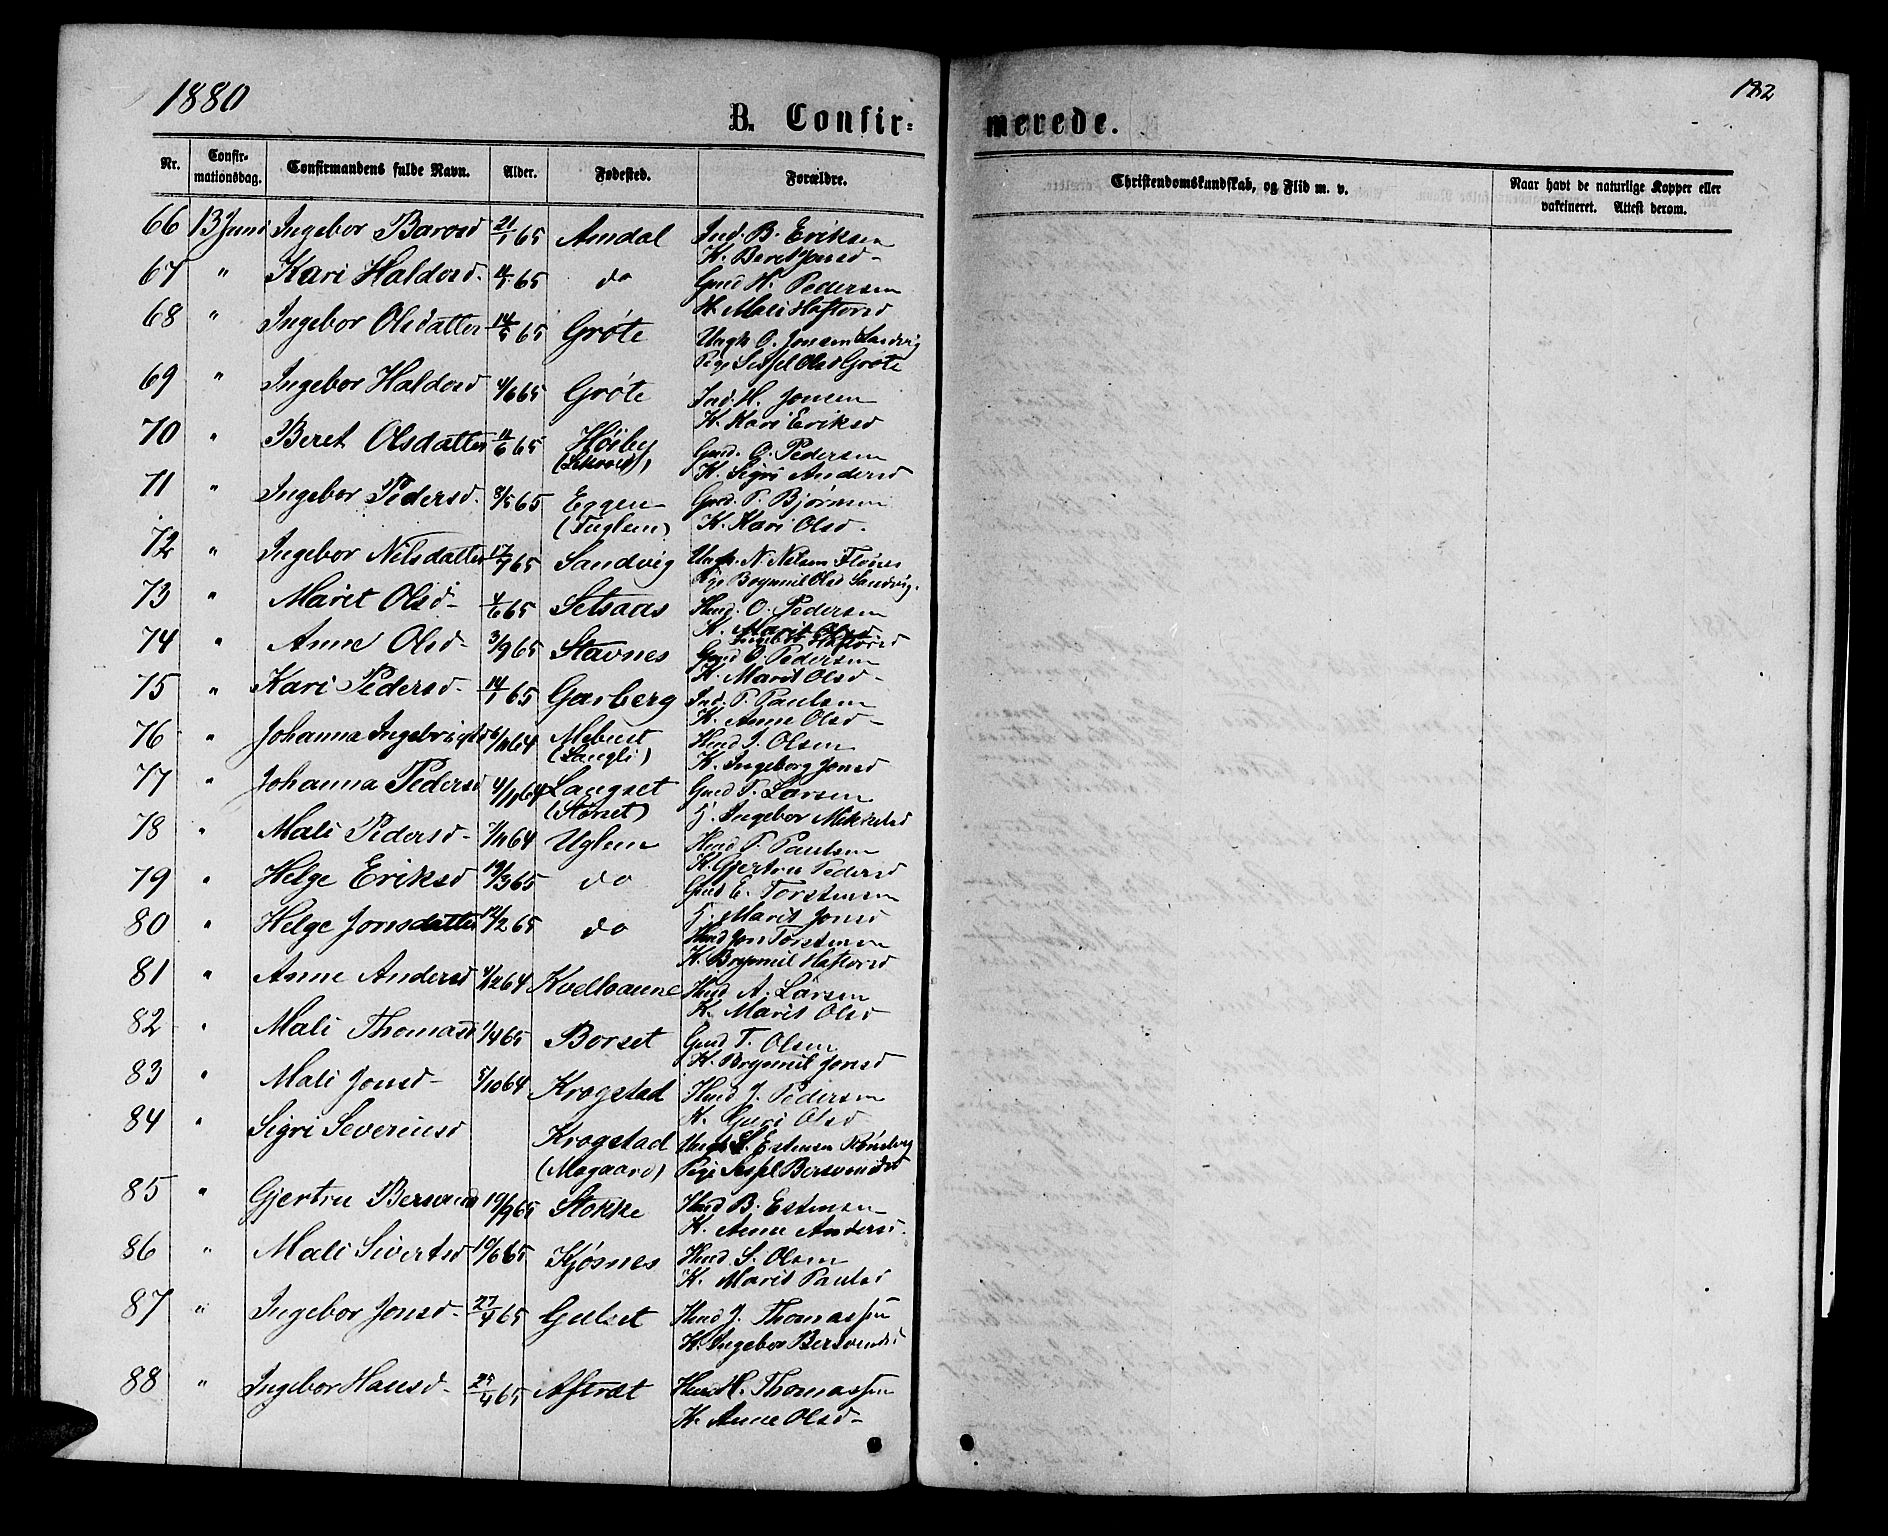 1880
182
B. Confir=
merede.
Nr. Confirmationsdag. Confirmandens fulde Navn. Alder. Fødested. Forældre. Christendomskundskab, og Flid m. v. Naar havt de naturlige Kopper eller vakcineret. Attest derom.
66 13 Juni Ingebor Barosd 21/1 65 Amdal Ind. B. Eriksen
K. Beret Jonsd-
67 " Kari Haldosd- 65 do Gmd H. Pedersen
K. Mali Haftorsd
68 " Ingebor Olsdatter 14/5 65 Grøte Ungk O. Jonsen Sandvig
Pige Sissel Olsd Grøte
69 " Ingebor Haldosd 4/6 65 Grøte Ind. H. Jonsen
K. Kari Eriksd
70 " Beret Olsdatter 11/6 65 Høiby Gmd. O. Pedersen
K. Sigri Andersd
71 " Ingebor Pedersd- 8/5 65 Eggen Gmd. P. Bjørnsen
(Fuglem) K. Kari Olsd.
72 " Ingebor Nilsdatter 17/7 65 Sandvig Ungk. N. Nilsen Flønes
Pige Brynnil Olsd Sandvig.
73 " Marit Olsd- 4/6 65 Setsaas Hmd. O. Pedersen
K. Haftorsd
74 " Anne Olsd- 3/9 65 Stavnes Gmd O. Pedersen
K. Marit Olsd-
75 " Kari Pedersd- 14/1 65 Garberg Ind. P. Paulsen
K. Anne Olsd-
76 " Johanna Ingebrigtsd 6/11 64 Mebust Hmd I. Olsen
(Langli) K. Ingeborg Jonsd
77 " Johanna Pedersd 4/11 64 Langset Gmd P. Larsen
(Størset) K. Ingebor
78 " Mali Pedersd- 7/11 64 Uglem Hmd P. Paulsen
K. Gjertru Pedersd
79 " Helge Eriksd 19/3 65 do Gmd E. Torstensen
K. Marit Jonsd
80 " Helge Jonsdatter 12/2 65 do Hmd Jon Torstensen
K. Brynnil Haftorsd
81 " Anne Andersd 4/12 64 Kvelhaune Hmd A. Larsen
K. Marit Olsd
82 " Mali Thomasd 1/4 65 Borset Gmd T. Olsen
K. Brynnil Jonsd
83 " Mali Jonsd- 5/10 64 Krogstad Hmd J. Pedersen
K. Guri Olsd
84 " Sigri Severinsd Krogstad Ungk S. Estensen Rønsberg
(Mogaard) Pige Sissel Bersvendsd
85 " Gjertru Bersvend 19/9 65 Stokke Hmd B. Estensen
K. Anne Andersd.
86 " Mali Sivertsd 10/6 65 Kjøsnes Hmd. S. Olsen
K. Marit Paulsd
87 " Ingebor Jonsd- 27/4 65 Gulset Hmd J. Thomassen
K. Ingebor Bersvendsd
88 " Ingebor Hansd- 25/4 65 Aftret Hmd H. Thomassen
K. Anne Olsd-